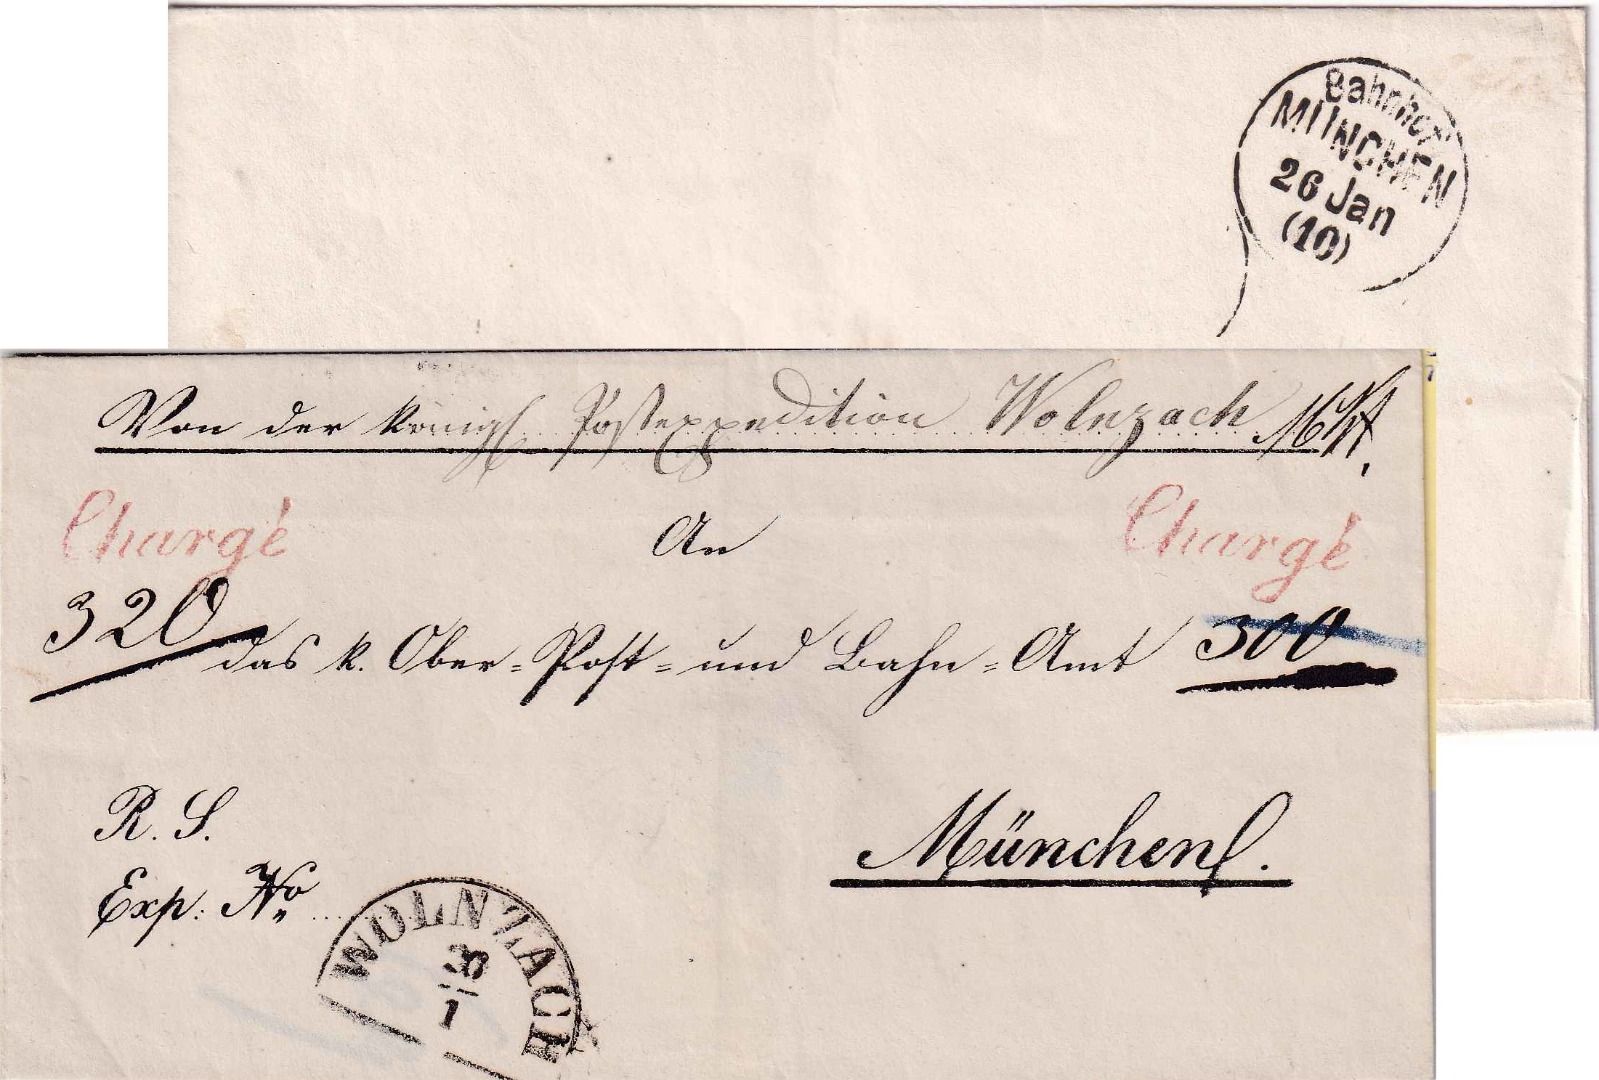 Bahnhof
MÜNCHEN
26 Jan
(10)
Von der königl. Postexpedition Wolnzach Mkt.
Chargé An Chargé
320 das k. Ober-Post- und Bahn-Amt 300
R. S. München.
Exp: No
WOLNZACH
1